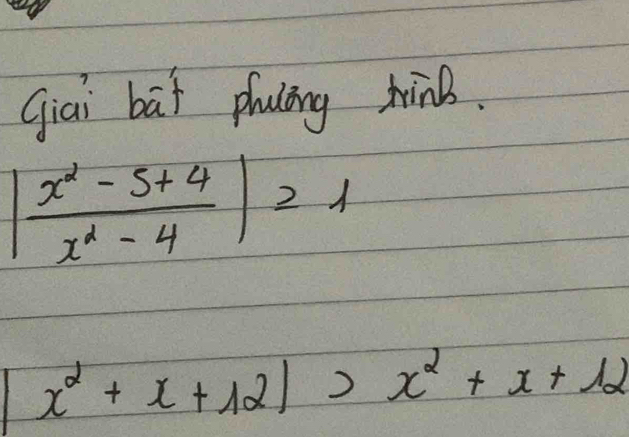 Giải bất phương trình.
| \frac{x² - 5 + 4}{x² - 4} | ≥ 1
| x² + x + 12 | > x² + x + 12